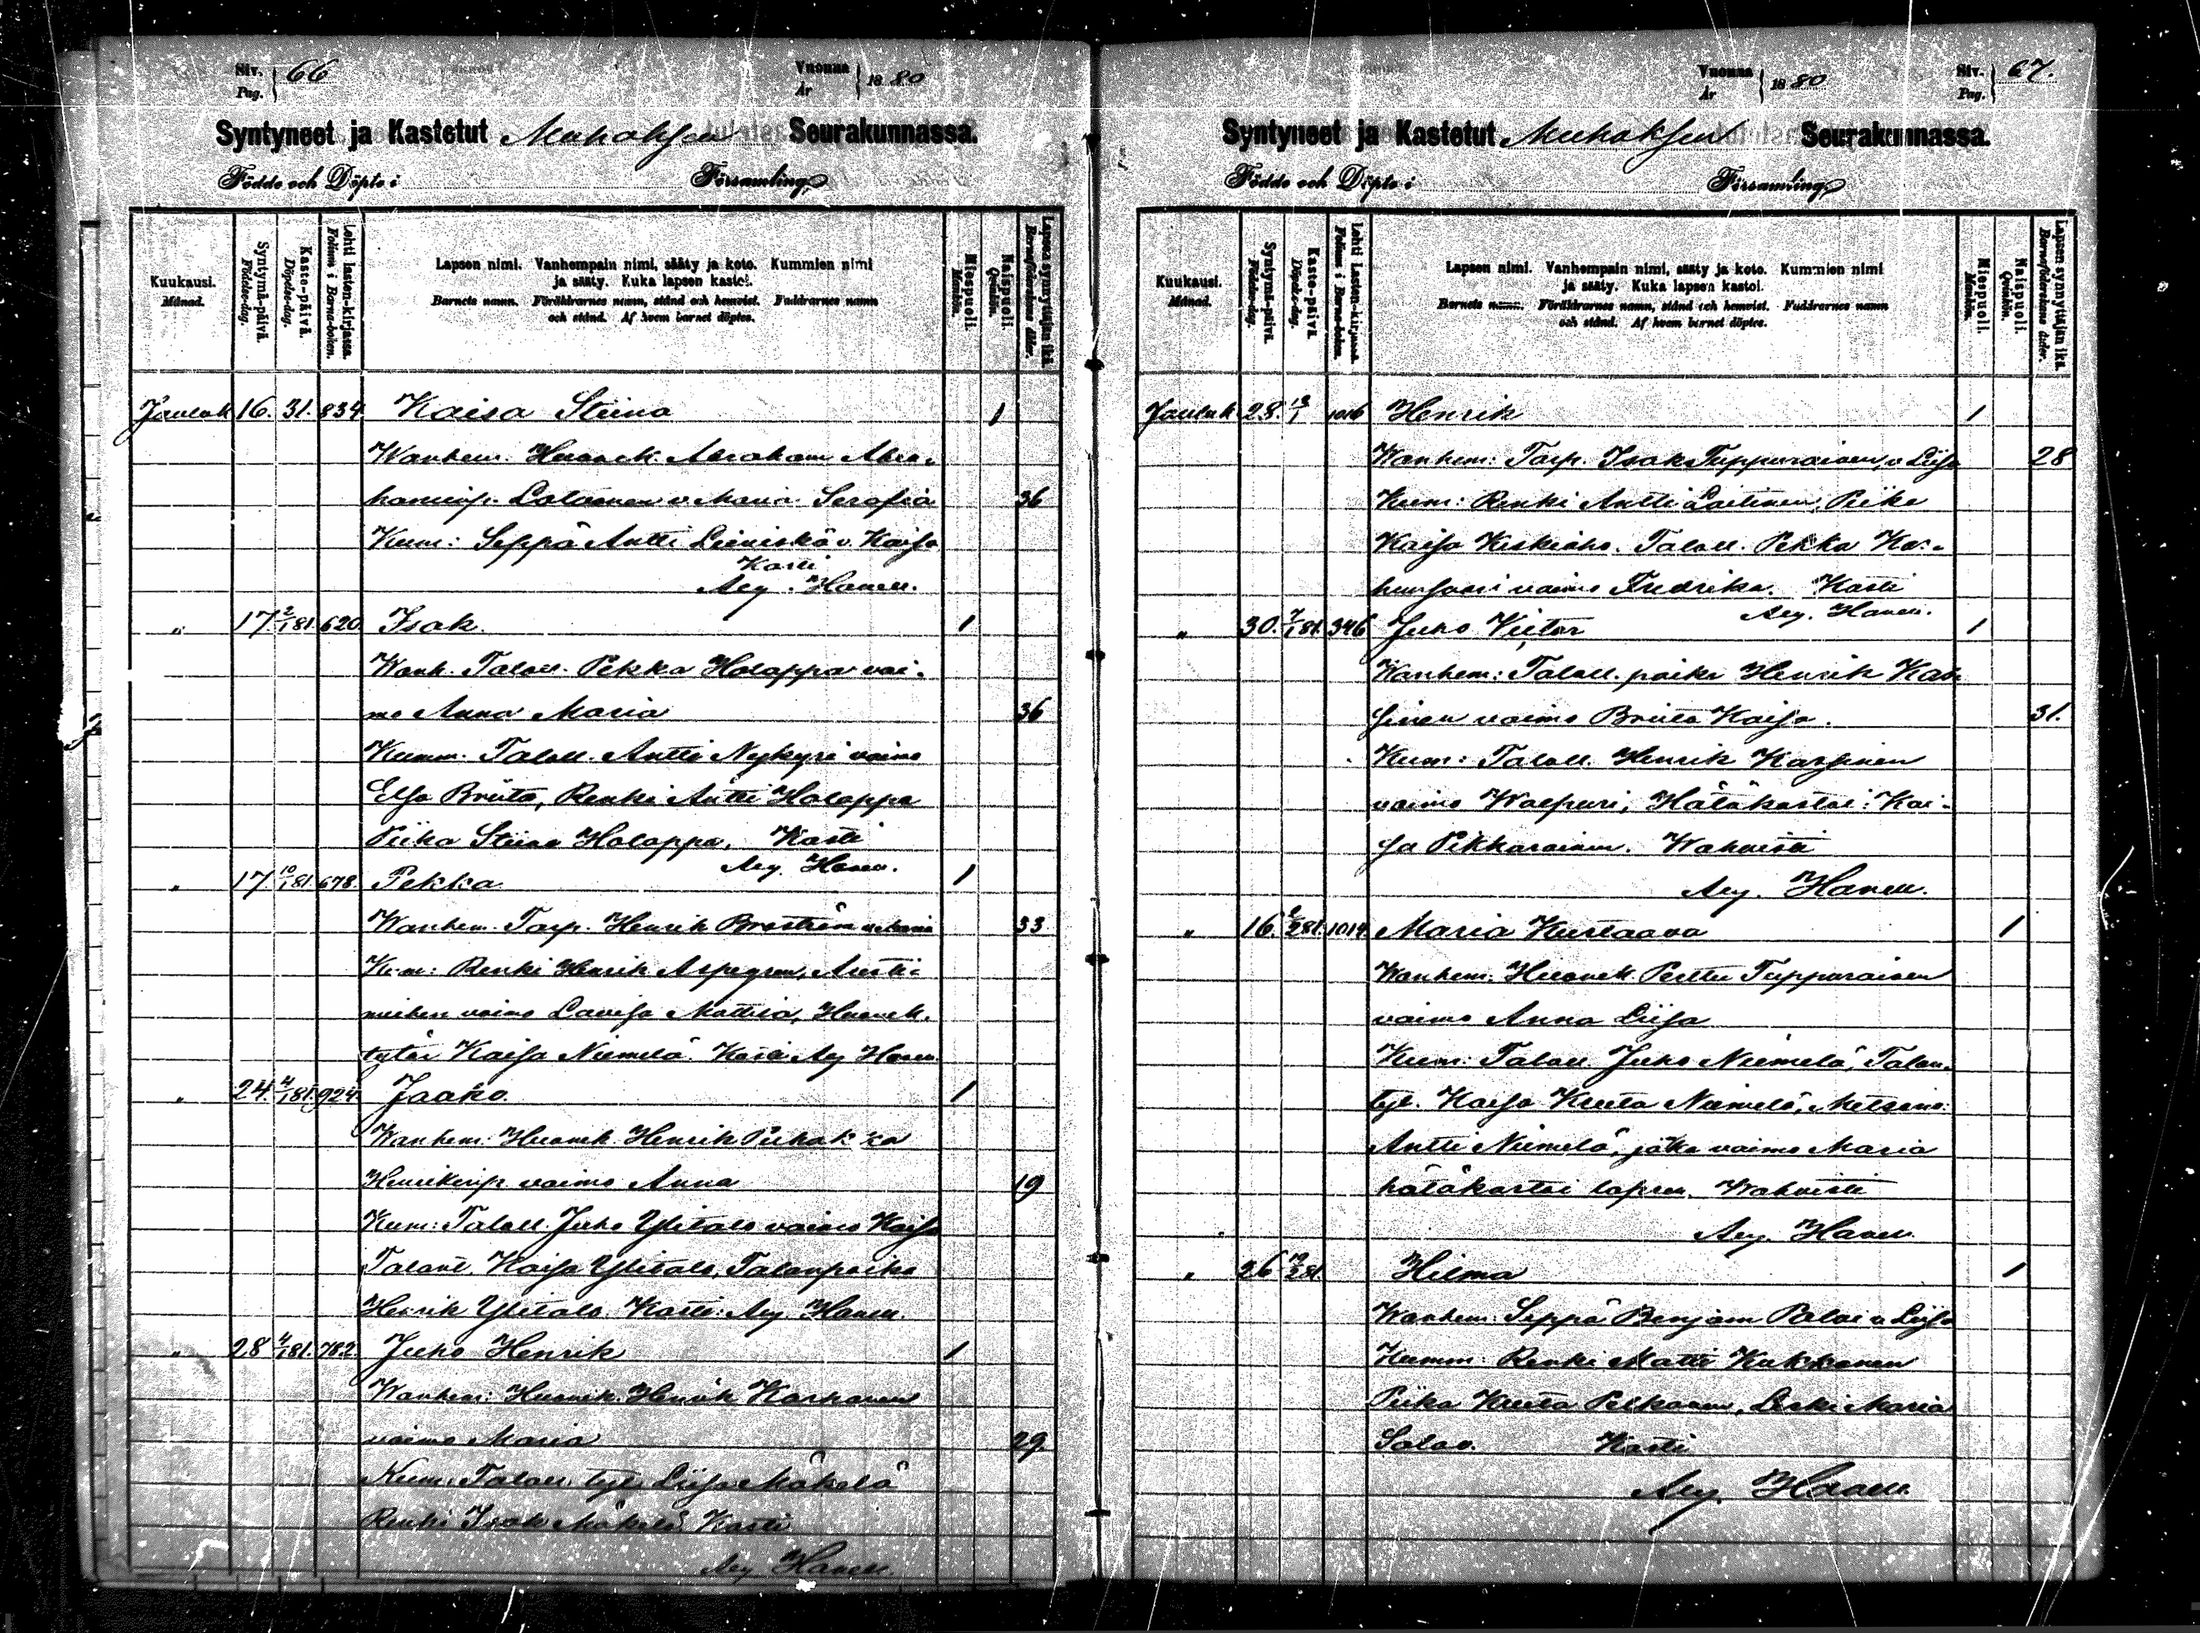 Siv. 66
Pag.
Vuonna 1880
År
Syntyneet ja Kastetut Muhoksen Seurakunnassa.
Födde och Döpte i Församling
Kuukausi. Månad.
Syntymä-päivä. Födelse-dag.
Kaste-päivä. Döpelse-dag.
Lehti lasten-kirjassa. Folium i Barna-boken.
Lapsen nimi. Vanhempain nimi, sääty ja koto. Kummien nimi
ja sääty. Kuka lapsen kastoi.
Barnets namn. Föräldrarnes namn, stånd och hemvist. Faddrarnes namn
och stånd. Af hvem barnet döptes.
Miespuoli. Mankön.
Naispuoli. Qvinkön.
Lapsen synnyttäjän ikä. Barnaföderskans ålder.
Jouluk 16. 31. 834 Kaisa Stiina 1
Wanhem. Huonek. Abraham Abra-
haminp. v. Maria Serafia 36
Kum: Seppä Antti v. Kaisa
Kasti
Aug. Hanell.
" 17. 2/1 81. 620 Isak. 1
Wanh. Taloll. Pekka Holappa vai-
mo Anna Maria 36
Kumm. Taloll. Antti Nykyri vaimo
Elsa Briita, Renki Antti Holappa
Piika Stiina Holappa, Kasti
Aug. Hanell.
" 17. 10/1 81. 678. Pekka 1
Wanhem. Torp. Henrik Broström v. Maria 33
Kum: Renki Henrik Aspegren,
miehen vaimo Lovisa Mattila, Huonek.
tytär Kaisa Niemelä. Kasti Aug Hanell.
" 24. 4/1 81. 924. Jaako. 1
Wanhem: Huonek Henrik Puhakka
Henrikinp. vaimo Anna 19
Kum: Taloll. Juho Ylitalo vaimo Kaisa
Talont. Kaisa Ylitalo, Talonpoika
Henrik Ylitalo. Kasti: Aug. Hanell.
" 28 4/1 81. 782. Juho Henrik 1
Wanhem: Huonek. Henrik Karhanen
vaimo Maria 29.
Kum: Taloll. tyt. Liisa Mäkelä
Renki Isak Mäkelä Kasti
Aug Hanell
Vuonna 1880
År
Siv. 67.
Pag.
Syntyneet ja Kastetut Muhoksen Seurakunnassa.
Födde och Döpte i Församling
Kuukausi. Månad.
Syntymä-päivä. Födelse-dag.
Kaste-päivä. Döpelse-dag.
Lehti lasten-kirjassa. Folium i Barna-boken.
Lapsen nimi. Vanhempain nimi, sääty ja koto. Kummien nimi
ja sääty. Kuka lapsen kastoi.
Barnets namn. Föräldrarnes namn, stånd och hemvist. Faddrarnes namn
och stånd. Af hvem barnet döptes.
Miespuoli. Mankön.
Naispuoli. Qvinkön.
Lapsen synnyttäjän ikä. Barnaföderskans ålder.
Jouluk 28. 1016 Henrik 1
Wanhem: Torp. Isak Tuppurainen, v Liisa 28
Kum: Renki Antti Laitinen, Piika
Kaisa Keskiaho. Taloll. Pekka Kor-
hunsaari vaimo Fredrika. Kasti
Aug. Hanell.
" 30. 7/1 81. 346 Juho Viktor 1
Wanhem: Taloll. poika Henrik Kar-
sinen vaimo Briita Kaisa. 31.
Kum: Taloll. Henrik Karsinen
vaimo Walpuri, Hätäkastoi: Kai-
sa Pikkarainen. Wahvisti
Aug. Hanell.
" 16. 2/2 81. 1014 Maria Kustaava 1
Wanhem. Huonek. Perttu Tuppurainen
vaimo Anna Liisa
Kum: Taloll. Juho Niemelä, Talon-
tyt. Kaisa Kreeta Niemelä,
Antti Niemelä, jóka vaimo Maria
hätäkastoi lapsen. Wahvisti
Aug. Hanell.
" 26 81. Hilma 1
Wanhem: Seppä Benjam v. Liisa
Kumm: Renki Matti Kukkonen
Piika Kreeta Pelkonen, Leski Maria
Salo. Kasti
Aug. Hanell.